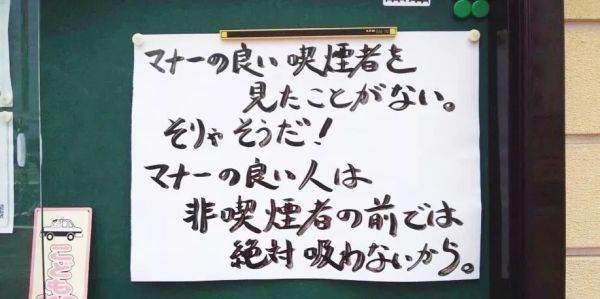 マナーの良い喫煙者を
見たことがない。
そりゃそうだ!
マナーの良い人は
非喫煙者の前では
絶対吸わないから。
こども